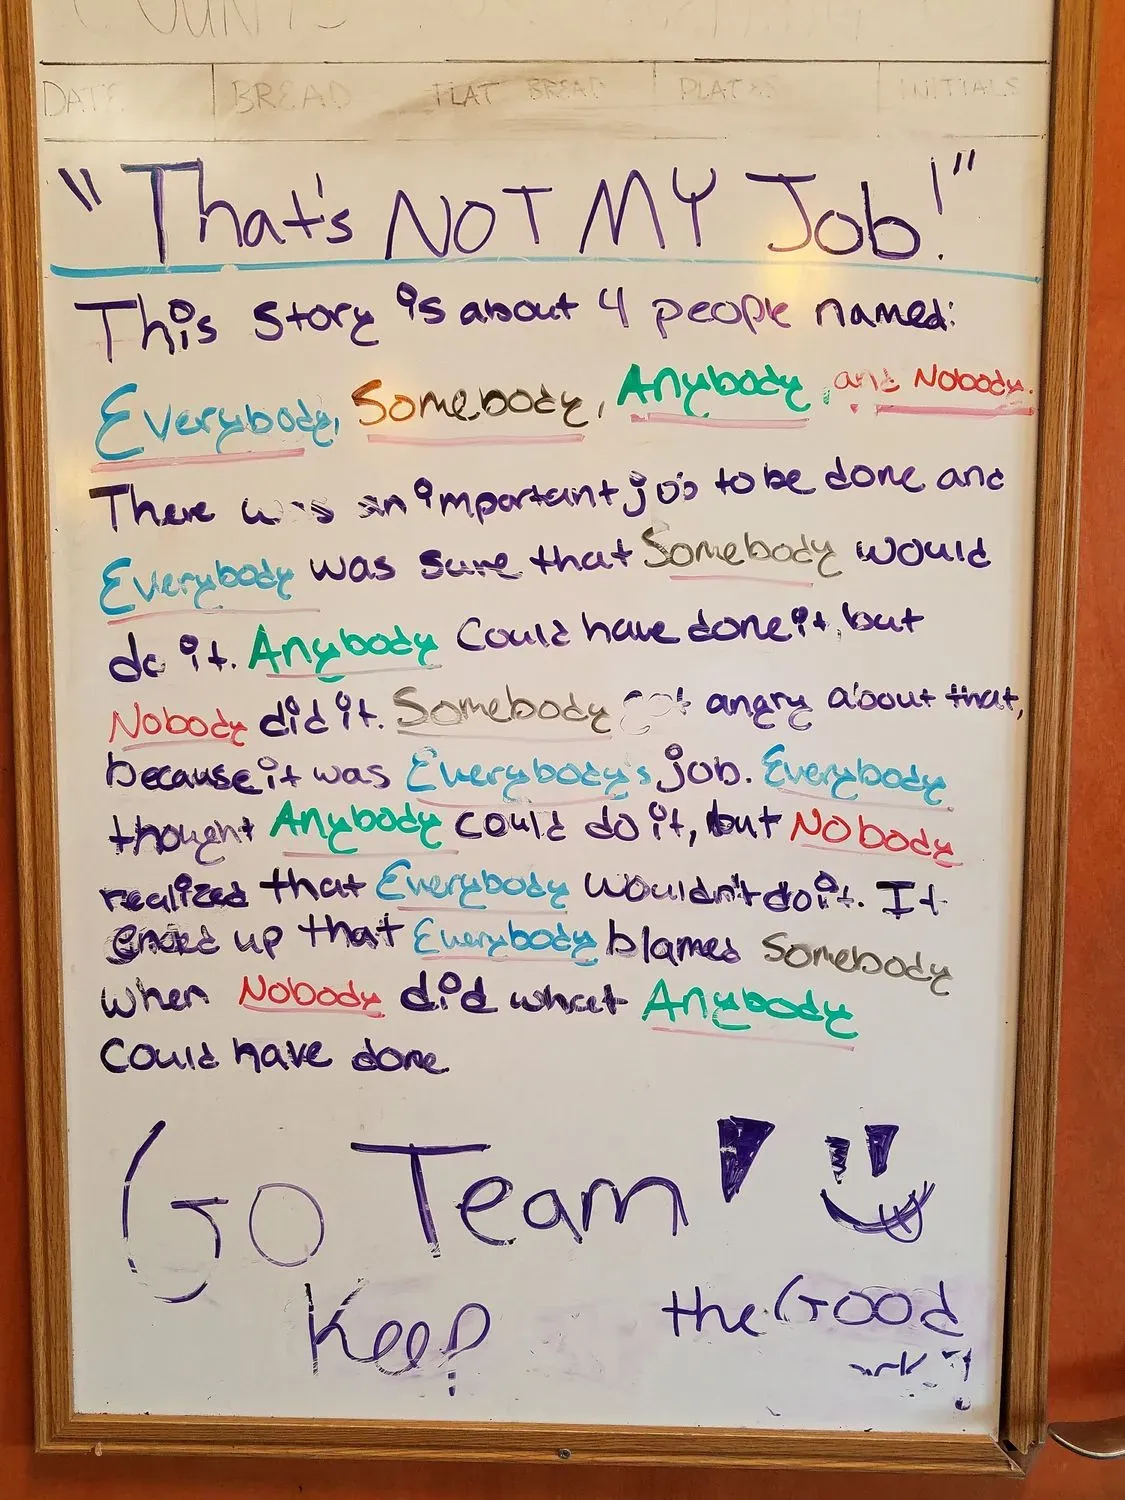 COUNTS
DATE BREAD FLAT BREAD PLATES INITIALS
"That's NOT MY Job!"
This story is about 4 people named:
Everybody, Somebody, Anybody, and Nobody.
There was an important job to be done and
Everybody was sure that Somebody would
do it. Anybody could have done it, but
Nobody did it. Somebody got angry about that,
because it was Everybody's job. Everybody
thought Anybody could do it, but Nobody
realized that Everybody wouldn't do it. It
ended up that Everybody blamed Somebody
when Nobody did what Anybody
could have done.
Go Team!
Keep the Good